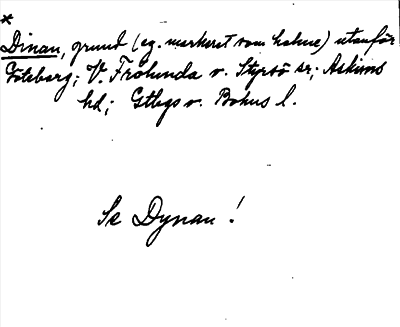 *
Dinan, grund (eg. markerat som holme) utanför
Göteborg; V. Frölunda o. Styrsö sr; Askims
hd; Gtbgs o. Bohus l.
Se Dynan!